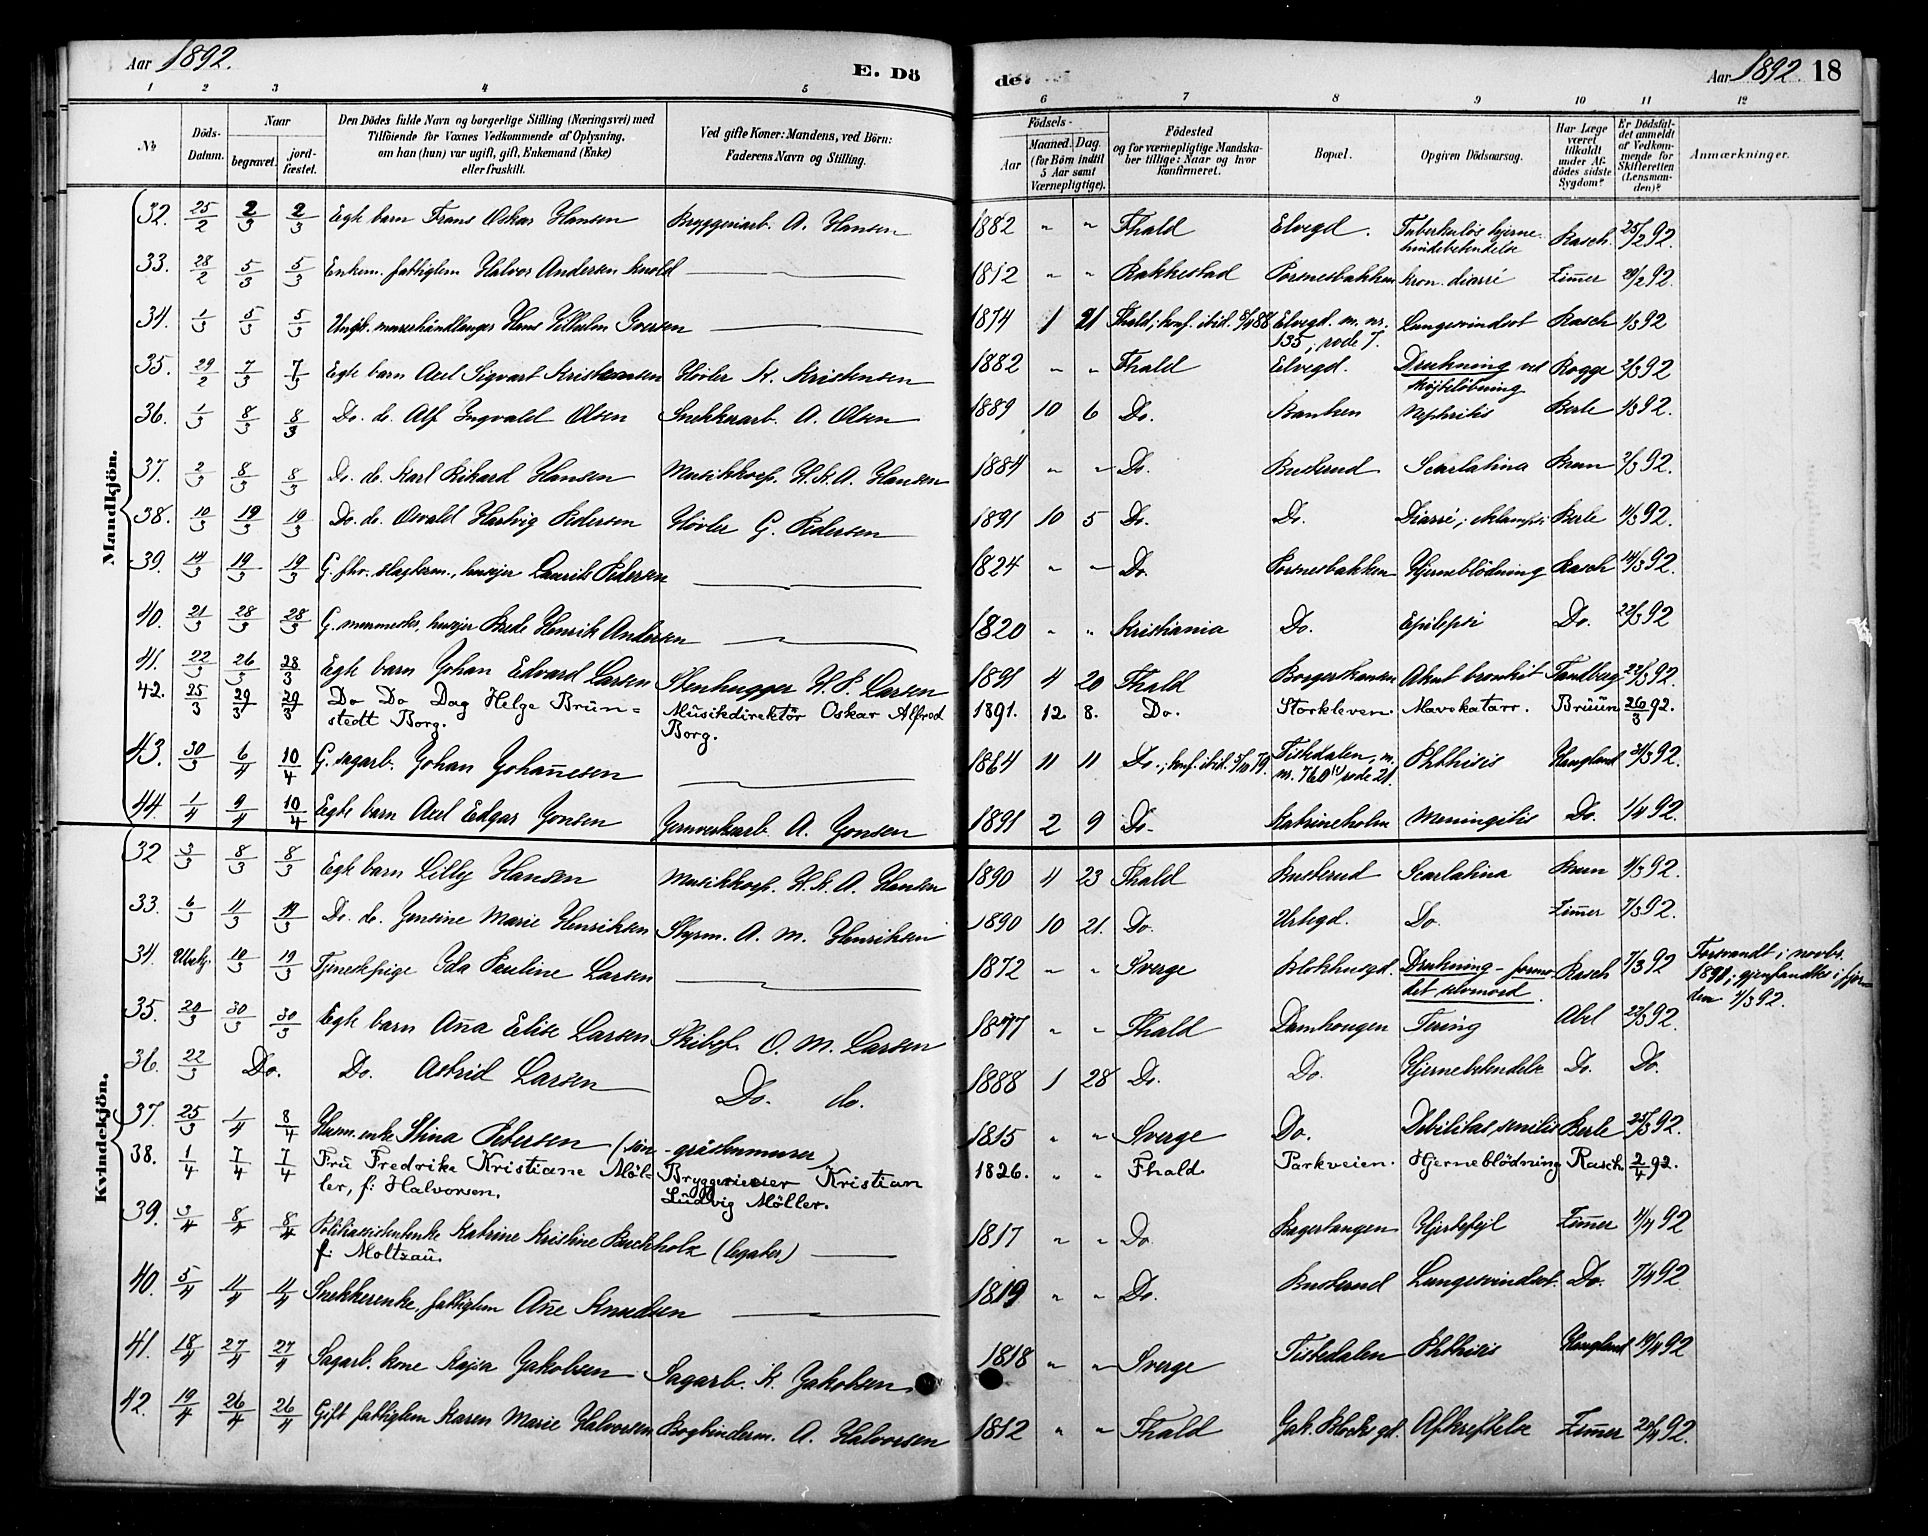 Aar 1892.
E. Dö
de.
Aar 1892. 18
1 2 3 4 5 6 7 8 9 10 11 12
No
Döds-Datum.
Naar
begravet.
jord-fæstet.
Den Dödes fulde Navn og borgerlige Stilling (Næringsvei) med
Tilföiende for Voxnes Vedkommende af Oplysning,
om han (hun) var ugift, gift, Enkemand (Enke)
eller fraskilt.
Ved gifte Koner: Mandens, ved Börn:
Faderens Navn og Stilling.
Födsels-
Aar
Maaned. Dag.
(for Börn indtil
5 Aar samt
Værnepligtige).
Födested
og for værnepligtige Mandska-
ber tillige: Naar og hvor
konfirmeret.
Bopæl.
Opgiven Dödsaarsag.
Har Læge
været
tilkaldt
under Af-
dödes sidste
Sygdom?
Er Dödsfal-
det anmeldt
af Vedkom-
mende for
Skifteretten
(Lensman-
den)?
Anmærkninger.
Mandkjön.
32. 25/2 2/3 2/3 Egte barn Frans Oskar Hansen Bryggeriarb. A. Hansen 1882 " " Fhald Elvegd. Tuberkuløs hjerne-
hindebetendelse Rasch 25/2 92.
33. 28/2 5/3 5/3 Enkem. fattiglem Halvor Andersen 1812 " " Rakkestad kron. diarré Zimer 29/2 92.
34. 1/3 5/3 5/3 Ungk. murerhåndlanger Hans Vilhelm Iversen 1874 1 21 Fhald; konf. ibid. 8/4 88 Elvegd. m. nr.
135, rode 7. Lungesvindsot Rasch 1/3 92
35. 29/2 7/3 7/3 Egte barn Axel Sigvart Kristensen Høvler K. Kristensen 1882 " " Fhald Elvegd. Drukning ved
skøjteløbning Rogge 2/3 92
36. 1/3 8/3 8/3 Do. do. Alf Ingvald Olsen Snekkerarb. A. Olsen 1889 10 6 Do. Banken Nephritis Berle 1/3 92.
37. 2/3 8/3 8/3 Do. do. Karl Rikard Hansen Musikkorp. H. K. A. Hansen 1884 " " Do. Busterud Scarlatina Bruun 2/3 92.
38. 10/3 19/3 19/3 Do. do. Osvald Hartvig Pedersen Høvler G. Pedersen 1891 10 5 Do. Do. Diarré; eklampsi Berle 11/3 92.
39. 14/3 19/3 19/3 G. fhv. slagterm., huseier Laurits Pedersen 1824 " " Do. Hjerneblödning Rasch 14/3 92.
40. 21/3 28/3 28/3 G. murmester, husejer Brede Henrik Andersen 1820 " " Kristiania Do. Epilepsi Do. 22/3 92
41. 22/3 26/3 28/3 Egte barn Johan Edvard Larsen Stenhugger H. P. Larsen 1891 4 20 Fhald Borgerskansen Akut bronkit Tandberg 22/3 92.
42. 25/3 29/3 29/3 Do Do Dag Helge Brün=
stedt Borg. Musikdirektör Oskar Alfred
Borg. 1891. 12 8. Do. Storkleven. Mavekatarr. Brüün 26/3 92.
43. 30/3 6/4 10/4 G. sagarb. Johan Johañesen 1864 11 11 Do.; konf. ibid. 5/10 79. Tistedalen, m.
nr. 760 rode 21. Phthisis Haugland 31/3 92.
44. 1/4 9/4 10/4 Egte barn Axel Edgar Jonsen Jernverksarb. A. Jonsen 1891 2 9 Do. Katrineholm Meningitis Do. 1/4 92.
Kvindekjön.
32 3/3 8/3 8/3 Egte barn Lilly Hansen Musikkorp. H. K. A. Hansen 1890 4 23 Fhald Busterud Scarlatina Bruun 4/3 92.
33. 6/3 11/3 19/3 Do. do. Jensine Marie Henriksen Styrm. A. M. Henriksen 1890 10 21. Do. Urtegd. Do. Zimer 7/3 92.
34. Ubekj. 10/3 19/3 Tjenestepige Ida Pauline Larsen 1872 " " Sverge Blokhusgd. Drukning - formo-
det selvmord. Rasch 7/3 92 Forsvandt i novbr.
1891; gjenfandtes i fjor-
den 4/3 92.
35. 20/3 30/3 30/3 Egte barn Aña Elise Larsen Skibsf. O. M. Larsen 1877 " " Fhald Damhougen Tering Abel 22/3 92.
36. 22/3 Do. Do. Astrid Larsen Do. do. 1888 1 28 Do. Do. Hjernebetendelse Do. Do.
37. 25/3 1/4 8/4 Husm. enke Stina Petersen (svin-
gråstensmurer) 1815 " " Sverge Do. Debilitas senilis Berle 25/3 92.
38. 1/4 7/4 7/4 Frü Fredrike Kristiane Möl-
ler, f: Halvorsen. Bryggerieier Kristian
Lüdvig Möller. 1826. " " Fhald Parkveien. Hjerneblödning Rasch 2/4 92.
39. 3/4 8/4 8/4 Politiassistentenke Katrine Kristine Buchholz (legater)
f: Moltzaü. 1817 " " Do Bagertangen Hjertefejl Zimer 4/4 92
40. 5/4 11/4 11/4 Snekkerenke, fattiglem Añe Knudsen 1819 " " Do. Busterud Lungesvindsot. Do. 7/4 92
41. 18/4 27/4 27/4 Sagarb. kone Kajsa Jakobsen Sagarb. K. Jakobsen 1818 " " Sverge Tistedalen Phthisis Haugland 19/4 92
42. 19/4 26/4 26/4 Gift fattiglem Karen Marie Halvorsen Bogbinderm. A. Halvorsen 1812 " " Fhald Jak. Blocks gd. Afkræftelse Zimer 20/4 92.